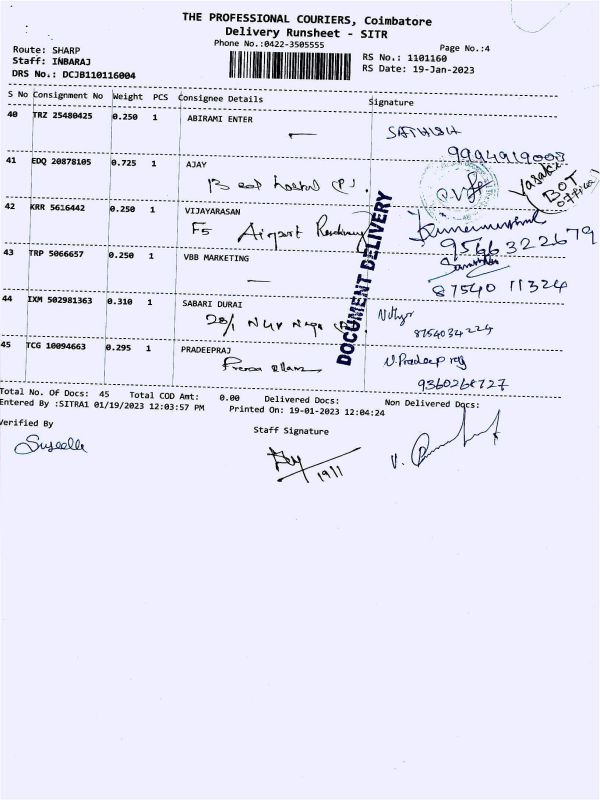 THE PROFESSIONAL COURIERS, Coimbatore
Delivery Runsheet - SITR
Phone No.:0422-3505555
Page No.:4
Route: SHARP
Staff: INBARAJ
DRS No.: DCJB110116004
RS No.: 1101160
RS Date: 19-Jan-2023
S No Consignment No Weight PCS Consignee Details Signature
40 TRZ 25480425 0.250 1 ABIRAMI ENTER
SATHISH
9994919008
41 EDQ 20878105 0.725 1 AJAY
42 KRR 5616442 0.250 1 VIJAYARASAN
F5 Airport
9566322679
43 TRP 5066657 0.250 1 VBB MARKETING
87540 11324
44 IXM 502981363 0.310 1 SABARI DURAI
28/1
8754034224
45 TCG 10094663 0.295 1 PRADEEPRAJ
V.Pradeep raj
DOCUMENT DELIVERY
Total No. Of Docs: 45 Total COD Amt: 0.00 Delivered Docs: Non Delivered Docs:
Entered By :SITRA1 01/19/2023 12:03:57 PM Printed On: 19-01-2023 12:04:24
Verified By
Staff Signature
19/1